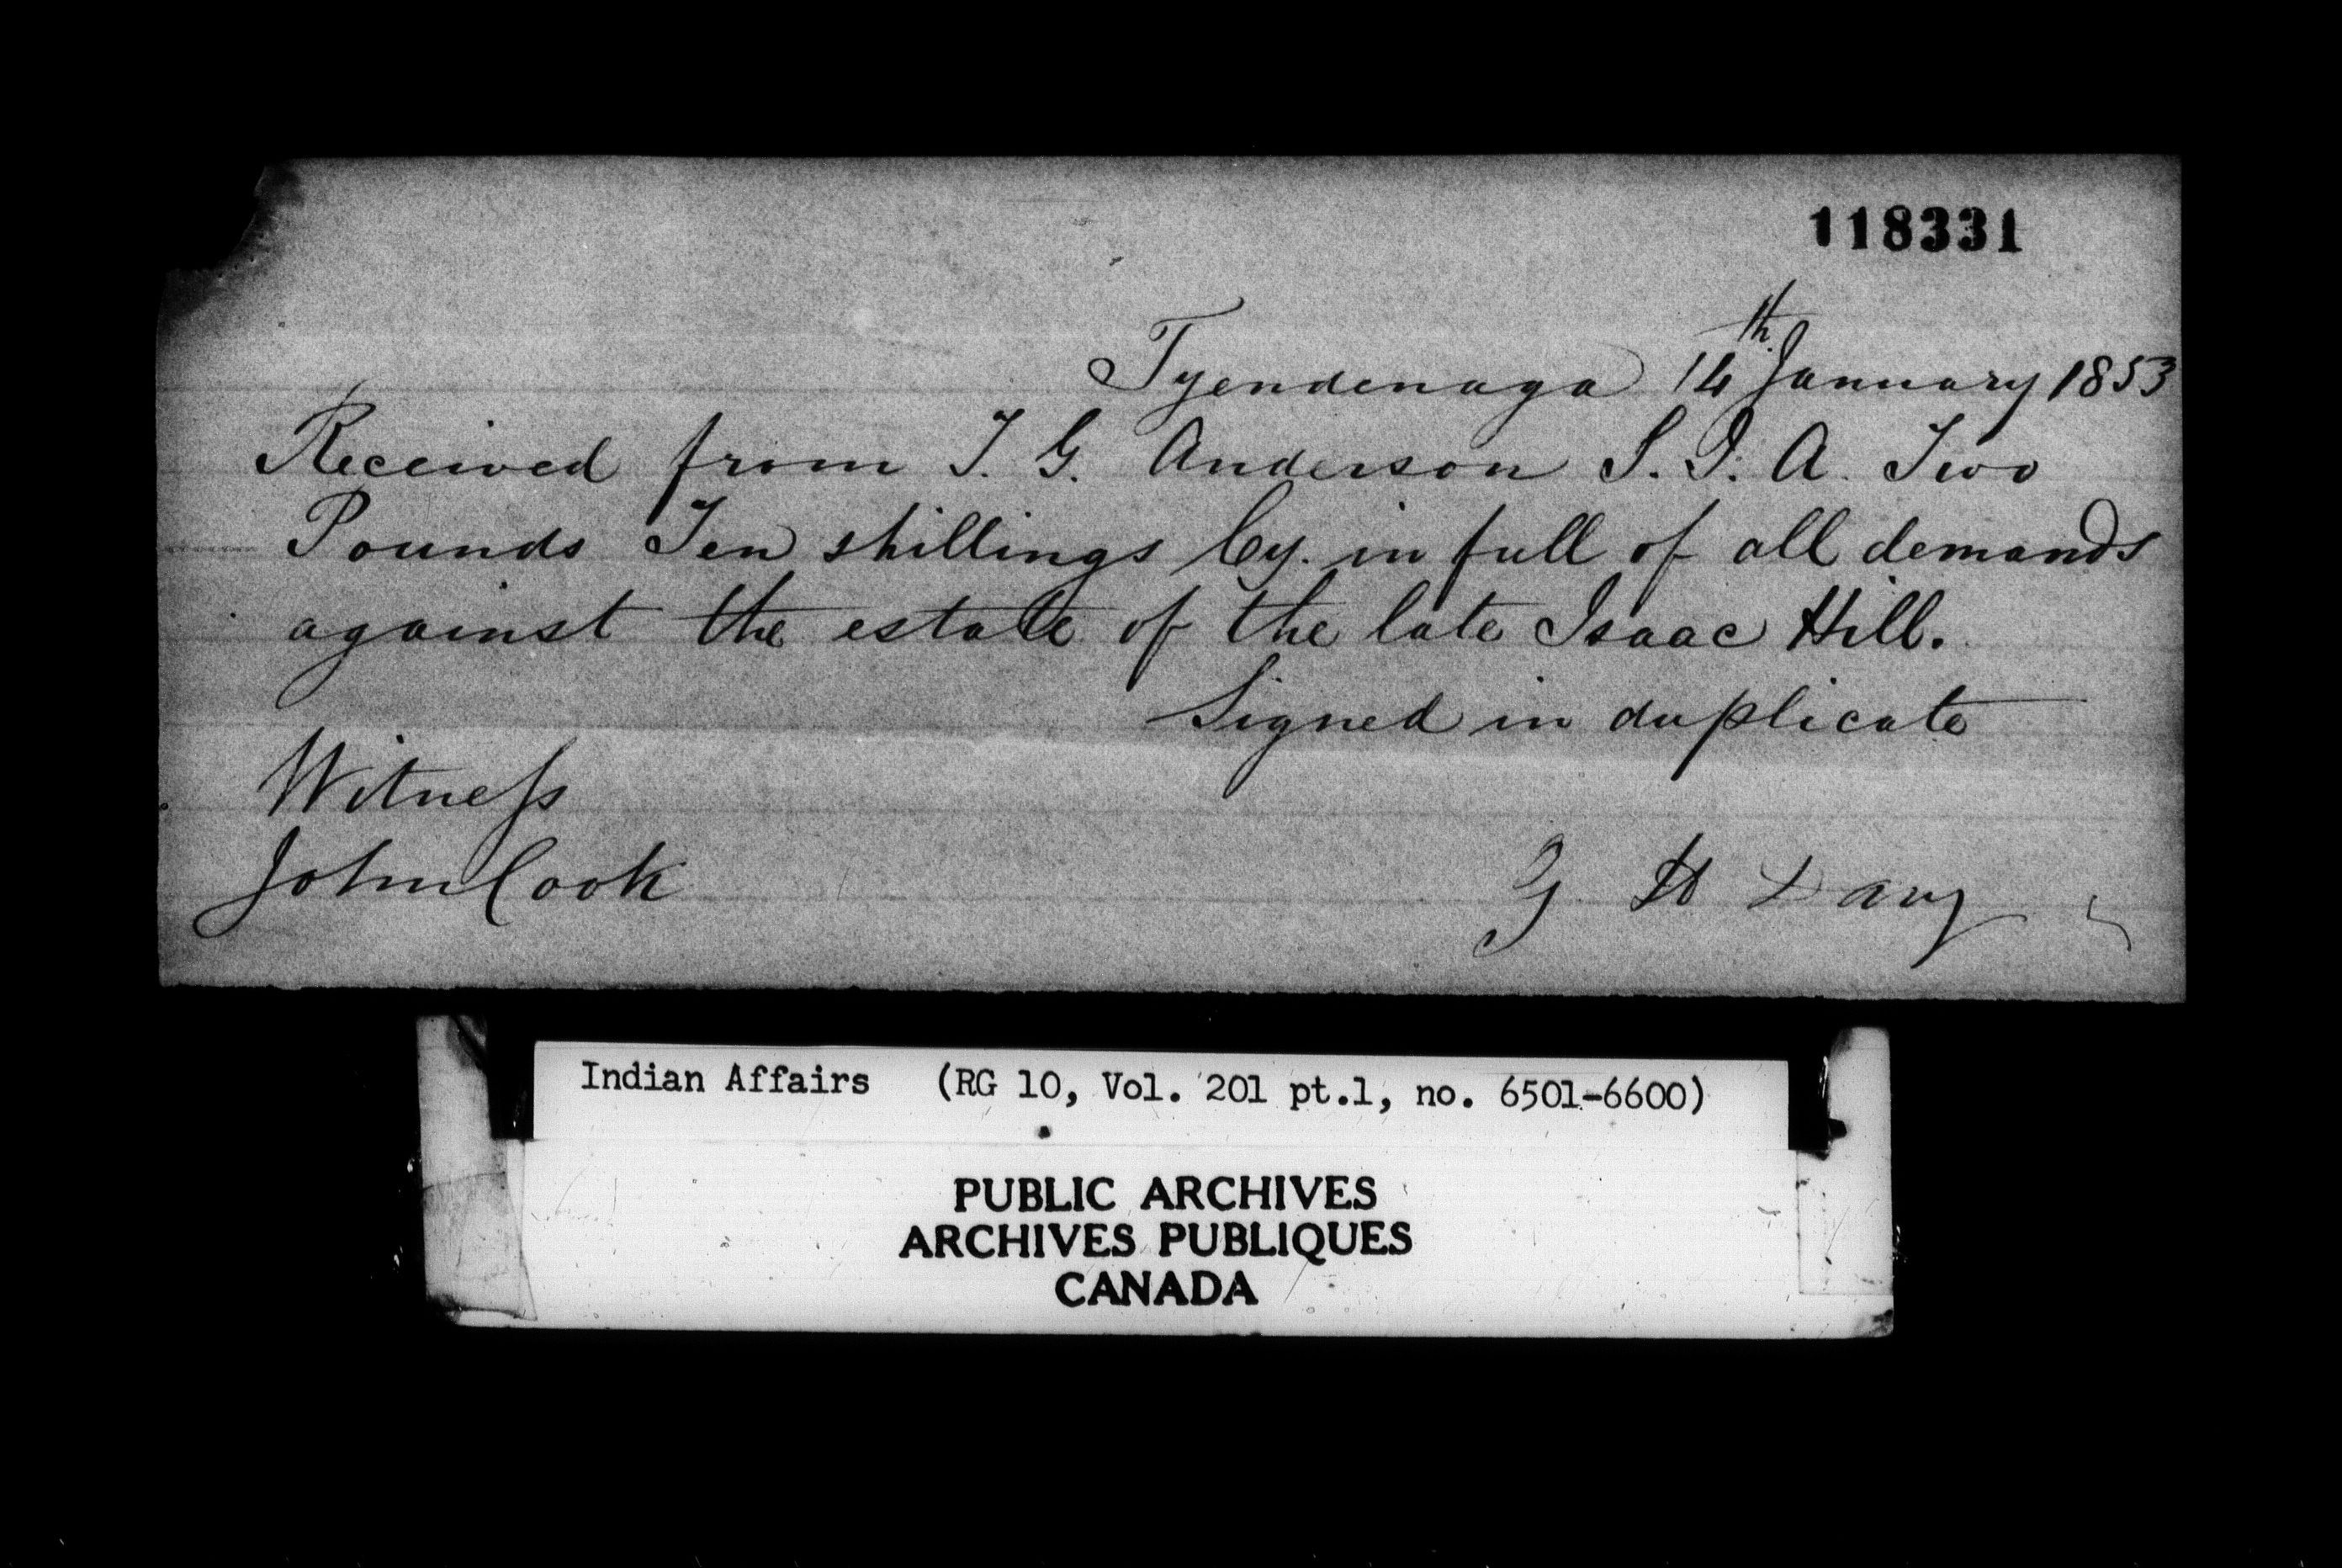 118331
Tyendenaga 14th January 1853
Received from T. G. Anderson S. I. A. Two
Pounds Ten shillings Cy. in full of all demands
against the estate of the late Isaac Hill.
Signed in duplicate
Witness
John Cook
G H Davy
Indian Affairs (RG 10, Vol. 201 pt.1, no. 6501-6600)
PUBLIC ARCHIVES
ARCHIVES PUBLIQUES
CANADA